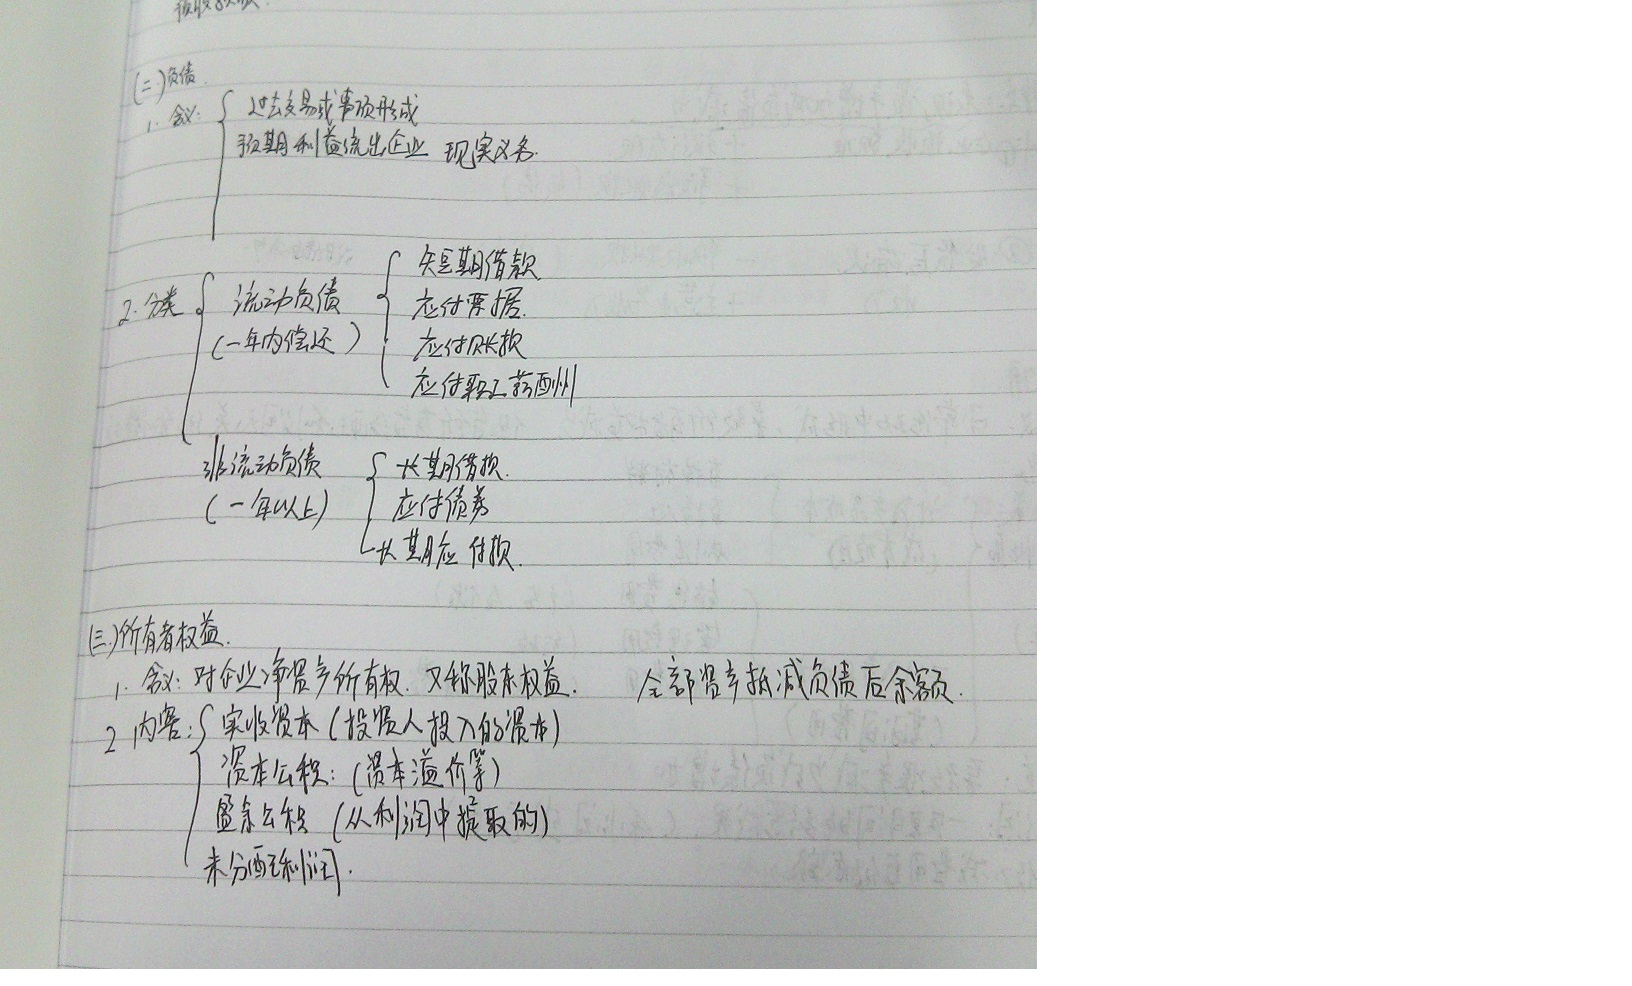 (二)负债.
1. 含义: 过去交易或事项形成
预期利益流出企业 现实义务.
2. 分类 流动负债 短期借款
(一年内偿还) 应付票据.
应付账款
应付职工薪酬
非流动负债 长期借款.
(一年以上) 应付债券
长期应付款.
(三)所有者权益.
1. 含义: 对企业净资产所有权. 又称股东权益. 全部资产抵减负债后余额.
2 内容: 实收资本 (投资人投入的资本)
资本公积: (资本溢价等)
盈余公积 (从利润中提取的)
未分配利润.